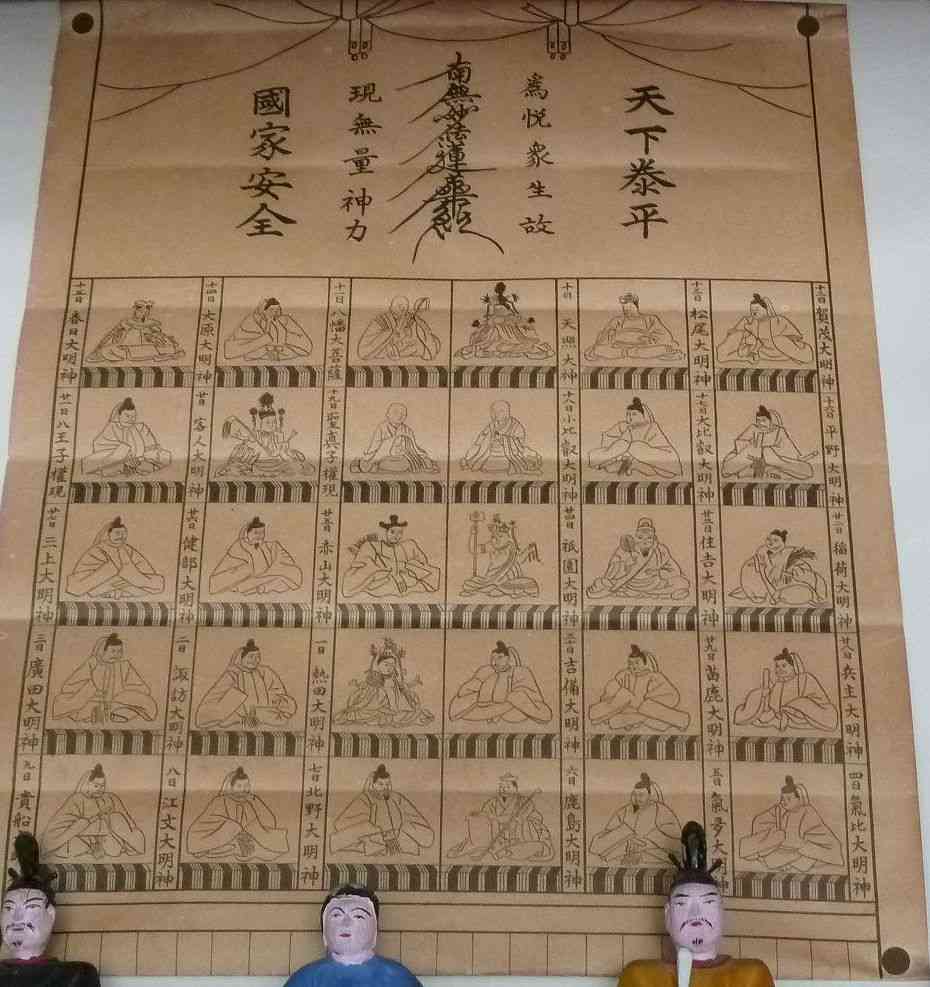 天下泰平
為悦衆生故
南無妙法蓮華経
現無量神力
國家安全
十二日 賀茂大明神
十三日 松尾大明神
十日 天照大神
十一日 八幡大菩薩
十四日 大原大明神
十五日 春日大明神
十六日 平野大明神
十七日 大比叡大明神
十八日 小比叡大明神
十九日 聖真子權現
廿日 客人大明神
廿一日 八王子權現
廿二日 稲荷大明神
廿三日 住吉大明神
廿四日 祇園大明神
廿五日 赤山大明神
廿六日 健部大明神
廿七日 三上大明神
廿八日 兵主大明神
廿九日 苗鹿大明神
三十日 吉備大明神
一日 熱田大明神
二日 諏訪大明神
三日 廣田大明神
四日 氣比大明神
五日 氣多大明神
六日 鹿島大明神
七日 北野大明神
八日 江文大明神
九日 貴船